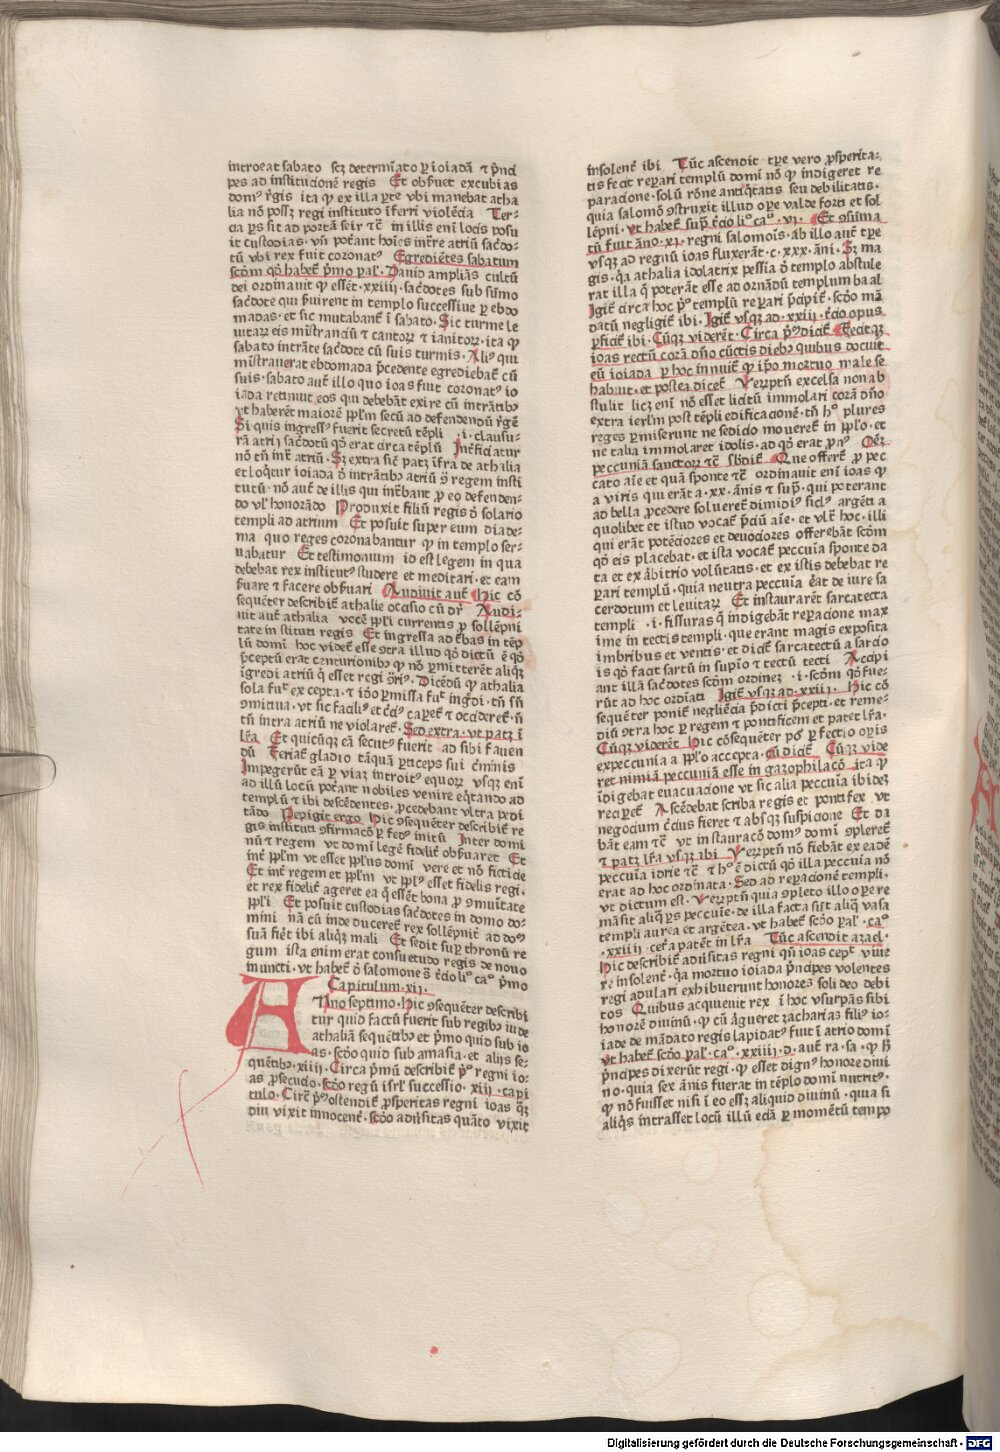 introeat sabato scꝫ determīato ꝑ ioiadā ⁊ p̄nci
pes ad institucionē regis Et obꝑuet excubias
dom⁹ r̄gis ita ꝙ ex illa ꝑte vbi manebat atha
lia nō possꝫ regi instituto īferri violēcia Ter⸗
cia ꝑs sit ad portā seir ⁊c̄ in illis enī locis posu
it custodias · vn̄ potāant hoīes int̄re atriū sac̄do⸗
tū vbi rex fuit coronat⁹ Egrediētes sabatum
scd̄m qd̓ habet̄ p̄mo pal̓ · Dauid amplians cultū
dei ordinauit ꝙ essēt · xxiiij · sac̄dotes sub sūmo
sac̄dote qui p̄uirent in templo successiue ꝑ ebdo
madas · et sic mutabant̄ ī sabato · Sic turme le
uitaꝝ eis mīstranciū ⁊ cantoꝝ ⁊ ianitoꝝ · ita ꝙ
sabato intrāte sac̄dote cū suis turmis · Ali⁹ qui
mīstrauerat ebdomada p̄cedente egrediebat̄ cū
suis · sabato aut̄ illo quo ioas fuit coronat⁹ io
iada retinuit eos qui debebāt exire cū intrātibꝫ
vt haberēt maiorē pp̄lm secū ad defendendū r̄gē
Si quis ingress⁹ fuerit secretū tēpli · i · clausu⸗
rā atrij sac̄dotū qd̓ erat circa tēplū Int̄ficiatur
nō tn̄ int̄ atriū · Sꝫ extra sic̄ patꝫ īfra de athalia
et loq̄tur ioiada d̓ intrātibꝫ atriū ꝯ̄ regem insti
tutū · nō aut̄ de illis qui int̄bant ꝑ eo defenden⸗
do vl̓ honorādo Produxit filiū regis d̓ solario
templi ad atrium Et posuit super eum diade⸗
ma quo reges coronabantur ꝙ in templo ser⸗
uabatur Et testimonium id est legem in qua
debebat rex institut⁹ studere et meditari · et eam
p̄uare ⁊ facere obp̄uari Audiuit aut̄ Hic cō
sequēter describit̄ athalie occisio cū dr̄ Audi⸗
uit aut̄ athalia vocē pp̄li currentis ꝑ sollēpni
tate in stituti regis Et ingressa ad t̄bas in tēp
lū domī hoc videt̄ esse ꝯtra illud qd̓ dictū ē qd̓
p̄ceptū erat centurionibꝫ ꝙ nō ꝑmitterēt aliqꝫ
īgredi atriū q̄ esset regi ꝯ̄ri⁹ · Dicēdū ꝙ athalia
sola fuᶜ excepta · ⁊ iō̄ ꝑmissa fuᶜ ingr̄di · tn̄ sn̄
ꝯmitiua · vt sic facili⁹ et cic̄i⁹ caꝑet̄ ⁊ occideret̄ · n̄
tn̄ intra atriū ne violaret̄ · Sed extra · vt patꝫ ī
lr̄a · Et quicūqꝫ eā secut⁹ fuerit ad sibi fauen
dū Feriat̄ gladio tāquā ꝑticeps sui c̄minis
Impegerūt eā ꝑ viaꝫ introit⁹ equoꝝ vsqꝫ enī
ad illū locū potāant nobiles venire eq̄tando ad
templū ⁊ ibi descēdentes · ꝓcedebant vltra pedi
tādo Pepigit ergo Hic ꝯsequēter describit̄ re
gis instituti ꝯfirmacō ꝑ fed⁹ initū Inter domi
nū ⁊ regem vt domī legē fidelit̄ obꝑuaret Et
int̄ pp̄lm vt esset pp̄lus domī vere et nō ficticie
Et int̄ regem et pp̄lm vt pp̄l⁹ esset fidelis regi ·
et rex fidelit̄ ageret ea q̄ essēt bona ꝓ ꝯmuītate
pp̄li Et posuit custodias sac̄dotes in domo do⸗
mini nā cū inde ducerēt rex sollēpnit̄ ad domū
suā fiet̄ ibi aliqꝫ mali Et sedit suꝑ thronū re
gum ista enim erat consuetudo regis de nouo
inuncti · vt habet̄ d̓ salomone ꝯ̄ t̄cio li⁰ ca⁰ p̄mo
Capitulum · xij ·
ANno septimo · Hic ꝯsequēter describi
tur quid factū fuerit sub regibꝫ iude
athaliā sequētibꝫ et p̄mo quid sub io
as · scd̄o quid sub amasia · et alijs se⸗
quētibꝫ · xiiij · Circa p̄mū describit̄ p̄⁰ regni io⸗
as ꝓsecucio · scd̄o regū isrl̓ successio · xiij · capi
tulo · Circ̄ p̄⁰ ostendit̄ ꝓsperitas regni ioas qꝫ
diu vixit innocent̄ · scd̄o adūsitas quāto vixit
insolent̄ ibi Tūc ascendit tꝑe vero ꝓsperita⸗
tis fecit repari templū domī nō ꝙ indigeret re
paracione · solū rōne antiq̄tatis seu debilitatis ·
quia salomō ꝯstruxit illud oꝑe valde forti et sol
lēpni · vt habet̄ sup̄ t̄cio li⁰ ca⁰ · vi · Et ꝯsūma
tū fuit āno · xj · regni salomōis · ab illo aut̄ tꝑe
vsqꝫ ad regnū ioas fluxerāt · c · xxx · āni · Sꝫ ma
gis · qꝛ athalia idolatrix pessīa d̓ templo abstule
rat illa q̄ poterāt esse ad ornādū templum baal
Igit̄ circa hoc p̄⁰ templū repari p̄cipit̄ · scd̄o mā
datū negligit̄ ibi · Igit̄ vsqꝫ ad · xxiij · t̄cio opus
ꝑficit̄ ibi · Cūqꝫ viderēt · Circa p̄⁰ꝫ dicit̄ Fecitqꝫ
ioas rectū corā dn̄o cūctis diebꝫ quibus docuit
eū ioiada ꝑ hoc innuit̄ ꝙ ip̄o mortuo male se
habuit · et postea dicet̄ Veꝝptn̄ excelsa non ab
stulit licꝫ enī nō esset licitū immolari corā dn̄o
extra ierl̓m post tēpli edificacionē · tn̄ h⁰ plures
reges ꝑmiserunt ne sedicio moueret̄ in pp̄lo · et
ne talia immolaret idolis · ad qd̓ erat ꝓn⁹ Oēꝫ
peccuniā sanctoꝝ ⁊c̄ sbdit̄ Que offert̄ ꝓ pec
cato aīe et quā sponte ⁊c̄ ordinauit enī ioas ꝙ
a viris qui erāt a · xx · ānis ⁊ sup̄ · qui poterant
ad bella ꝓcedere soluerēt dimidiū sicli argēti a
quolibet et istud vocat̄ p̄ciū aīe · et vlt̄ hoc · illi
qui erāt potēciores et deuociores offerebāt scd̄m
qd̓ eis placebat · et ista vocat̄ peccuīa sponte da
ta et ex āb̄itrio volūtatis · et ex istis debebat re
pari templū · quia neutra peccuīa ēat de iure sa
cerdotum et leuitaꝝ Et instaurarēt sarcatecta
templi · i · fissuras q̄ indigebāt reparacione max
ime in tectis templi · que erant magis exposita
imbribus et ventis · et dicit̄ sarcatectū a sarcio
is qd̓ facit sartū in supīo ⁊ tectū tecti Accipi
ant illā sac̄dotes scd̄m ordinez · i · scd̄m qd̓ fue⸗
rūt ad hoc ordīati Igit̄ vsqꝫ ad · xxiij · Hic cō
sequēter ponit̄ negliēcia p̄dicti p̄cepti · et reme⸗
diū ꝯtra hoc ꝑ regem ⁊ pontificem et patet lr̄a ·
Cūqꝫ viderēt Hic cōsequēter po⁰ ꝑfectio oꝑis
expeccunia a pp̄lo accepta · cū dicit̄ Cūqꝫ vide
rēt nimiā peccuniā esse in gazophilacō ita ꝙ
īdigebat euacuacione vt sic alia peccuīa ibidez
reciꝑet̄ Ascēdebat scriba regis et pontifex vt
negocium t̄cius fieret ⁊ absqꝫ suspicione Et da
bāt eam ⁊c̄ vt instauracō dom⁹ domī ꝯpleret̄
⁊ patꝫ lr̄a vsqꝫ ibi Veꝝptn̄ nō fiebāt ex eadē
peccuīa idrie ⁊c̄ ⁊ h⁰ ē dictū qd̓ illa peccuīa nō
erat ad hoc ordinata · Sed ad reparacionē templi ·
vt dictum est · Veꝝptn̄ quia ꝯpleto illo oꝑe re
māsit aliqꝫ ꝑs peccuīe · de illa facta sūt aliq̄ vasa
templi aurea et argētea · vt habet̄ scd̄o pal̓ · ca⁰
· xxiiij · cet̄a patēt in lr̄a Tūc ascendit azael ·
Hic describit̄ aduersitas regni qn̄ ioas cepᶜ viue
re insolent̄ · qꝛ mortuo ioiada p̄ncipes volentes
regi adulari exhibuerunt honores soli deo debi
tos Quibus acquieuit rex ī hoc vsurpās sibi
honorē diuinū · ꝙ cū āgueret zacharias fili⁹ io⸗
iade de mādato regis lapidat⁹ fuit ī atrio domī
vt habet̄ scd̄o pal̓ · ca⁰ · xxiiij · d · aut̄ ra · sa · ꝙ h̄
p̄ncipes dixerūt regi · ꝙ esset dign⁹ honore diui
no · quia sex ānis fuerat in tēplo domī nutrit⁹ ·
ꝙ nō fuisset nisi ī eo eēꝫ aliquid diuinū · quia si
aliq̄s intrasset locū illū eciā ꝑ momētū tempo
Digitalisierung gefördert durch die Deutsche Forschungsgemeinschaft - DFG